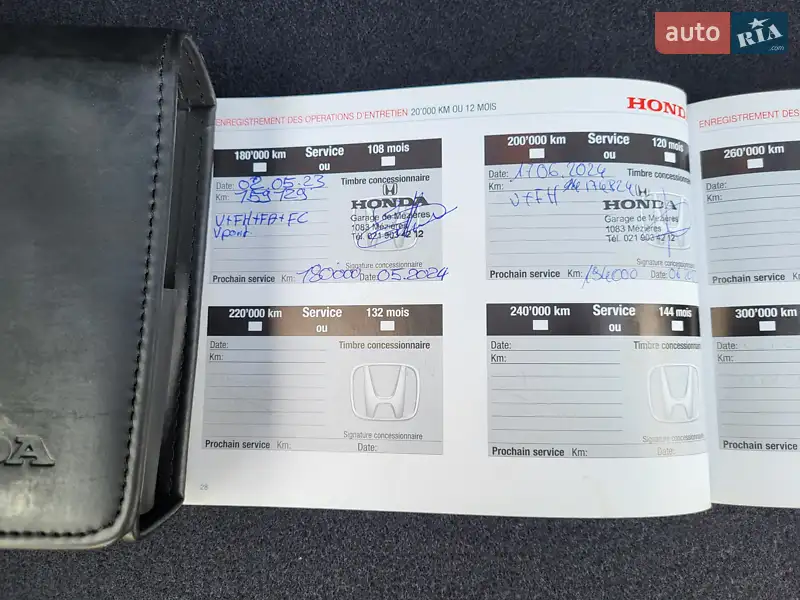 auto RIA .com
ENREGISTREMENT DES OPERATIONS D'ENTRETIEN 20'000 KM OU 12 MOIS
HONDA
180'000 km Service 108 mois
ou
Date: 02.05.23 Timbre concessionnaire
Km: 159 129
HONDA
V+FH+FA+FC
Garage de Mézières
1083 Mézières
Tél. 021 903 42 12
Signature concessionnaire
Prochain service Km: 180000 Date: 05.2024
200'000 km Service 120 mois
ou
Date: 17.06.2024 Timbre concessionnaire
Km: 174824
V+FH
HONDA
Garage de Mézières
1083 Mézières
Tél. 021 903 42 12
Signature concessionnaire
Prochain service Km: 194000 Date: 06
220'000 km Service 132 mois
ou
Date: Timbre concessionnaire
Km:
Signature concessionnaire
Prochain service Km: Date:
240'000 km Service 144 mois
ou
Date: Timbre concessionnaire
Km:
Signature concessionnaire
Prochain service Km: Date:
28
ENREGISTREMENT DES
260'000 km
Date:
Km:
Prochain service Km:
300'000 km
Date:
Km:
Prochain service
DA